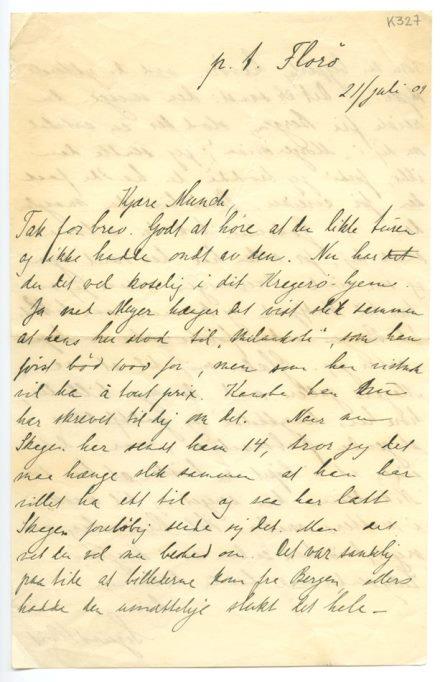 K327
p. t. Florö
21/juli 09
Kjære Munch,
Tak for brev. Godt at høre at du likte turen
og ikke hadde ondt av den. Nu har det
du det vel koselig i dit Kragerö-hjem.
Ja med Meyer hænger det vist slik sammen
at hans hu stod til "Melankoli", som han
först böd 1000 for, men som han
vil ha à tout prix. Kanske han
har skrevet til dig om det. Naar nu
Skogen har sendt ham 14, tror jeg det
maa hænge slik sammen at han har
villet ha ett til og saa har latt
Skogen foreløbig sende sig det. Men det
vet du vel nu besked om. Det var sandelig
paa tide at billederne kom fra Bergen, ellers
hadde den umættelige slukt det hele —